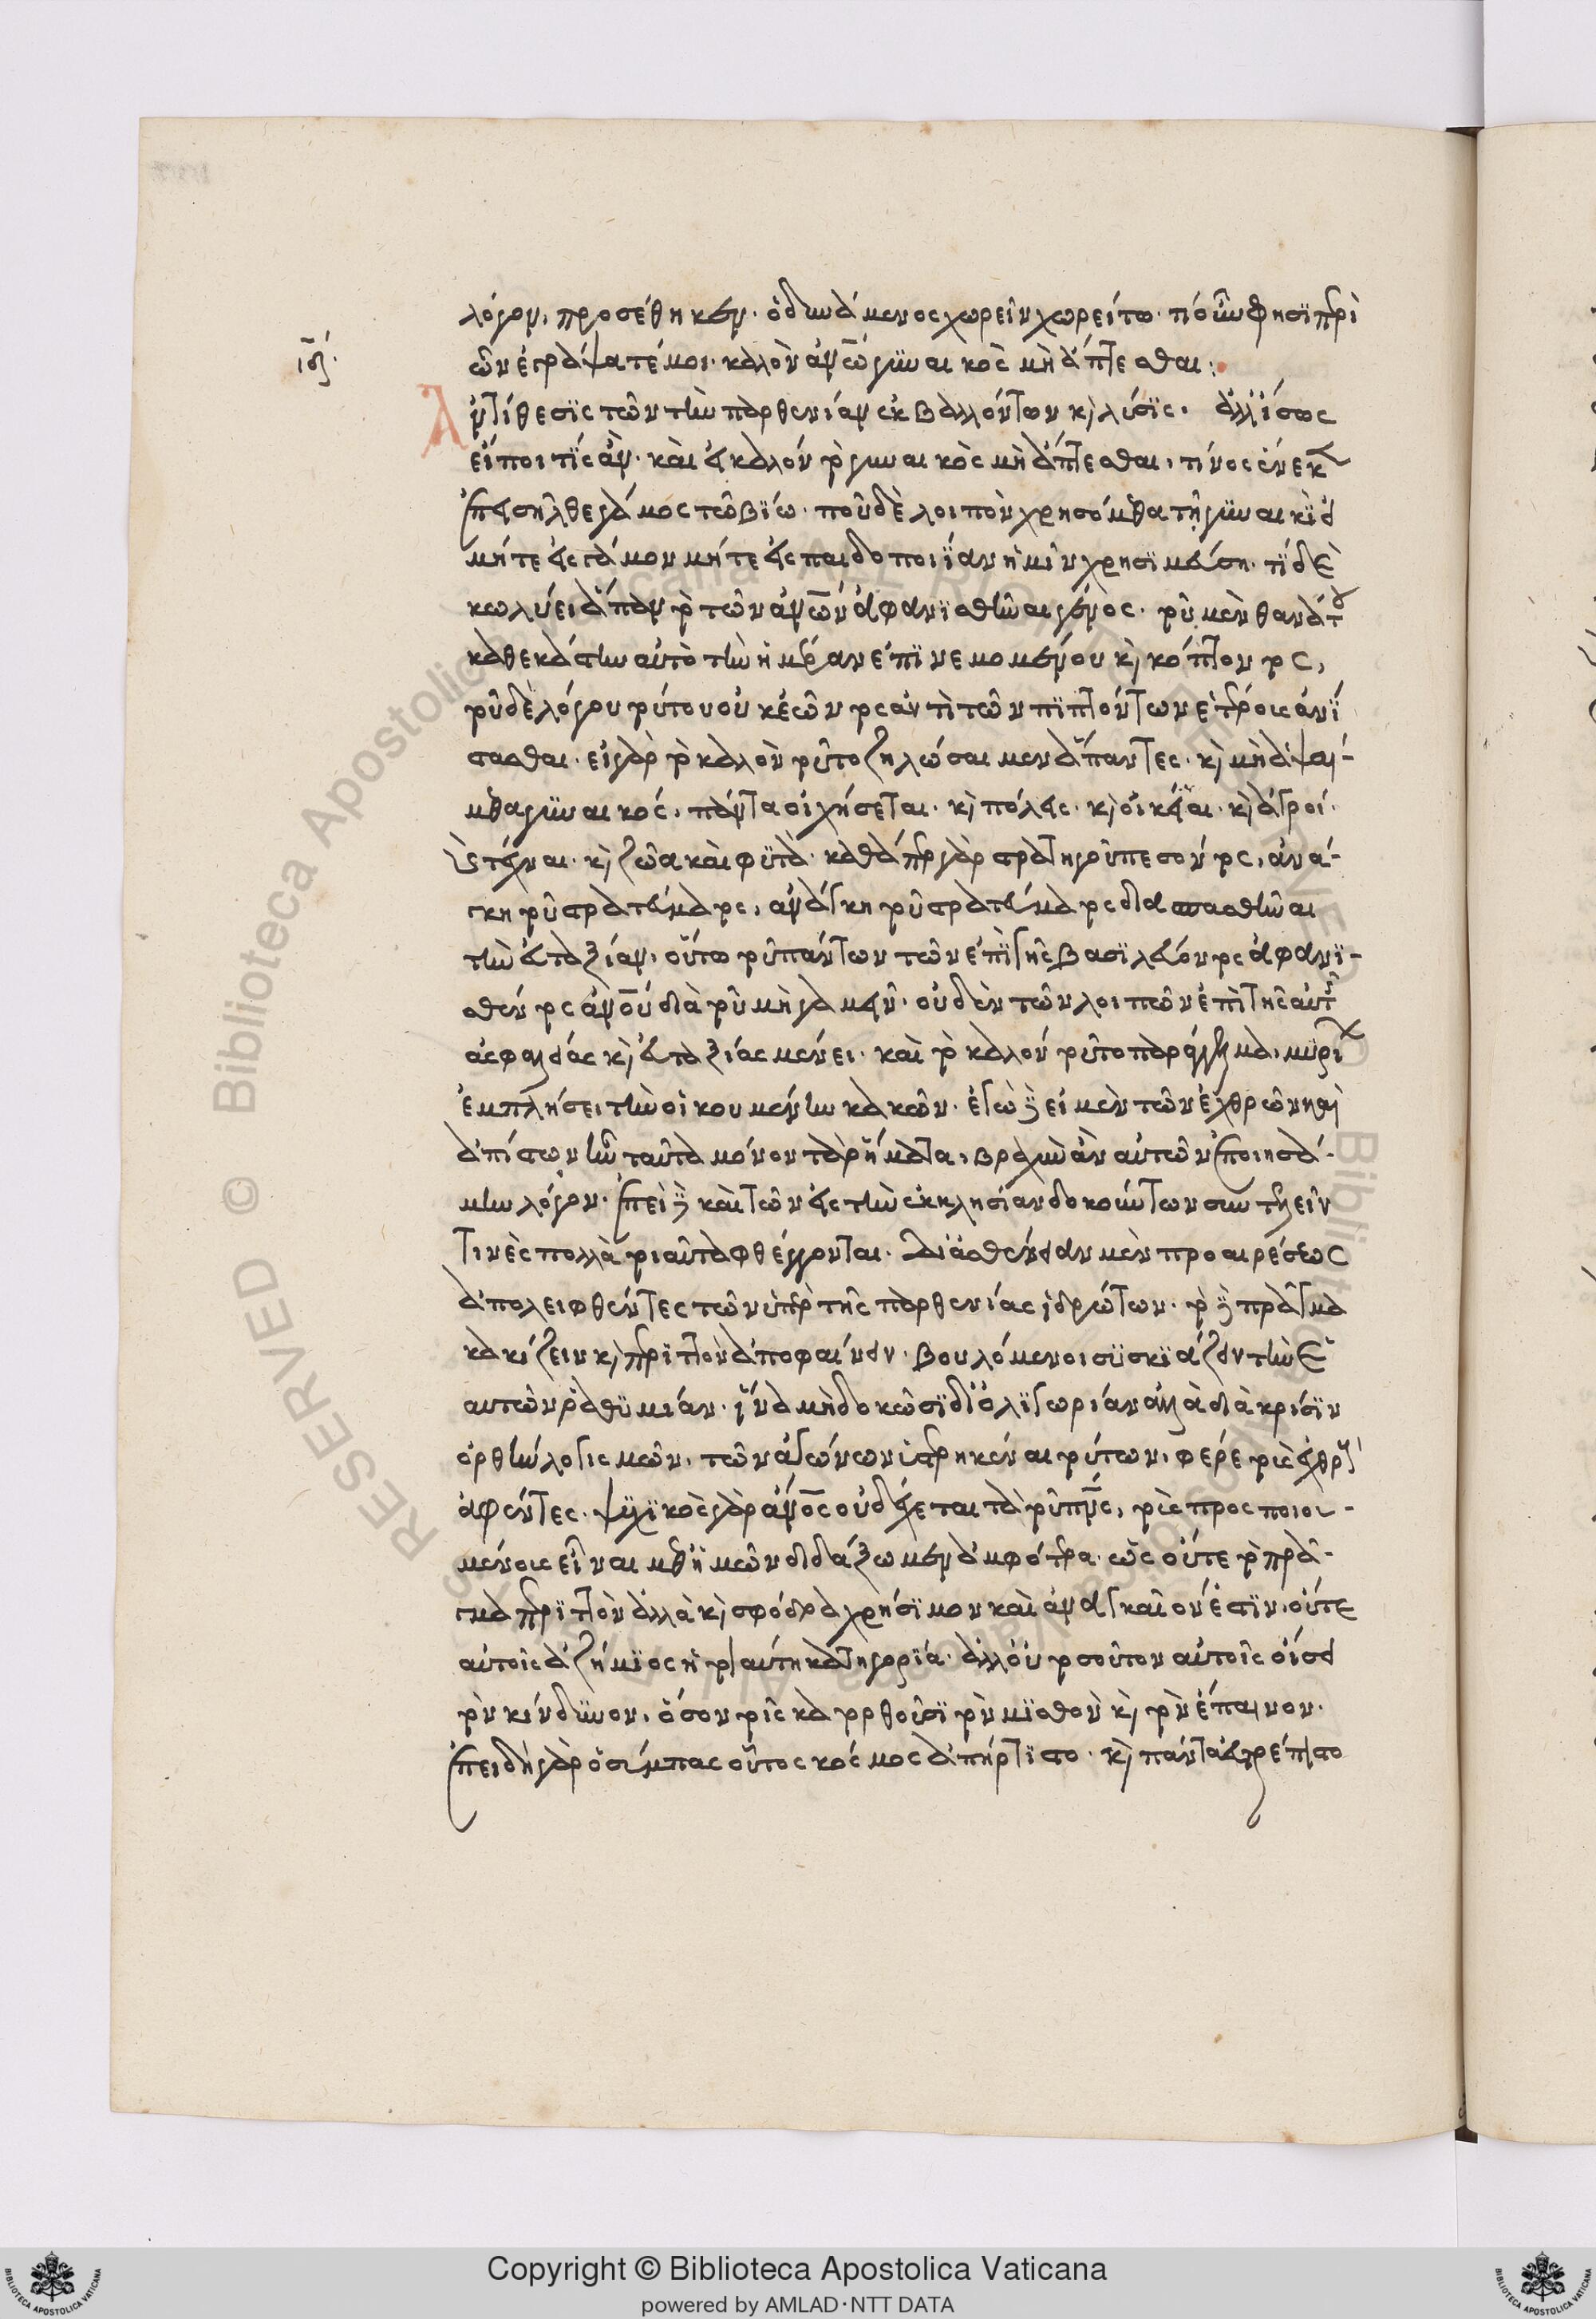 λόγον, προσέθηκεν· ὁ δυνάμενος χωρεῖν χωρείτω· τί οὖν φησϊ περὶ
ιδʹ.
ὧν ἐγράψατέ μοι· καλὸν ἀν̅ω̅ γϋναικὸς μὴ ἅπτεσθαι:
Ἀντίθεσϊς τῶν τὴν παρθενίαν ἐκβαλλόντων κ(αὶ) λύσϊς. ἀλλ' ἴσως
εἴποι τῒς ἄν· καὶ εἰ καλόν τὸ γυναικὸς μὴ ἅπτεσθαι, τίνος ἕνεκεν
ἐπεισῆλθε γάμος τῶ βΐω· ποῦ δὲ λοιπὸν χρησόμεθα τῇ γϋναικῒ εἰ
μήτε εἰς γάμον μήτε εἰς παιδοποιΐαν ἡμῖν χρησϊμεύση· τΐ δὲ
κωλύει ἅπαν τὸ τῶν ἀν̅ω̅ν ἀφανϊσθῆναι γένος· τοῦ μὲν θανάτου
καθεκάστην αὐτὸ τὴν ἡμέραν ἐπϊνεμομένου κ(αὶ) κόπτοντος,
τοῦ δὲ λόγου τούτου οὐκ ἐῶντος ἀντὶ τῶν πϊπτόντων ἑτέροις ἀνΐ
στασθαι· εἰ γὰρ τὸ καλὸν τοῦτο ζηλώσαιμεν ἅπαντες· κ(αὶ) μὴ ἁψαί-
μεθα γϋναικός, πάντα οἰχήσεται· κ(αὶ) πόλεις· κ(αὶ) οἰκίαι· κ(αὶ) ἀγροί·
κ(αὶ) τέχναι· κ(αὶ) ζῶα καὶ φϋτά· καθάπερ γὰρ στρατηγοῦ πεσόντος, ἀνά-
γκη τοῦ στρατεύματος, ἀνάγκη τοῦ στρατεύματος διασπασθῆναι
τὴν εὐταξίαν, οὕτω τοῦ πάντων τῶν ἐπῒ γῆς βασϊλεύοντος ἀφανϊ-
σθέντος ἀν̅ο̅υ διὰ τοῦ μὴ γαμεῖν· οὐδὲν τῶν λοιπῶν ἐπὶ τῆς αὐτῆς
ἀσφαλείας κ(αὶ) εὐταξίας μένει· καὶ τὸ καλόν τοῦτο παράγγελμα, μϋρίων
ἐμπλήσει τὴν οἰκουμένην κακῶν· ἐγὼ δὲ εἰ μὲν τῶν ἐχθρῶν καὶ
ἀπίστων ἦν ταῦτα μόνον τὰ ῥήματα, βραχὺν ἂν αὐτῶν ἐποιησά-
μην λόγον· ἐπεὶ δὲ καὶ τῶν εἰς τὴν ἐκκλησίαν δοκούντων συντελεῖν
τινὲς πολλὰ τοιαῦτα φθέγγονται· δι' ἀσθένειαν μὲν προαιρέσεως
ἀπολειφθέντες τῶν ὑπὲρ τῆς παρθενίας ἱδρώτων· τὸ δὲ πρᾶγμα
κακίζειν κ(αὶ) περϊττὸν ἀποφαίνειν· βουλόμενοι συσκϊάζειν τὴν ἑ
αυτῶν ῥαθϋμίαν· ἵνα μὴ δοκῶσϊ δι' ὀλϊγωρίαν ἀλλὰ διὰ κρίσϊν
ὀρθὴν λογισμῶν, τῶν ἀγώνων ὑστερηκέναι τούτων, φέρε τοὺς ἐχθροὺς
ἀφέντες· ψϋχϊκὸς γὰρ ἄν̅ο̅ς οὐ δέχεται τὰ τοῦ πν̅ς, τοὺς προςποιου-
μένους εἶναι μεθ' ἡμῶν διδάξωμεν ἀμφότερα· ὡς οὔτε τὸ πρᾶ-
γμα περϊττὸν ἀλλὰ κ(αὶ) σφόδρα χρήσϊμον καὶ ἀναγκαῖον ἐστϊν, οὔτε
αὐτοῖς ἀζήμϊος ἡ τοιαύτη κατηγορΐα· ἀλλ' οὐ τοσοῦτον αὐτοῖς οἴσει
τὸν κίνδϋνον, ὅσον τοῖς κατορθοῦσϊ τὸν μϊσθὸν κ(αὶ) τὸν ἔπαινον·
ἐπειδὴ γὰρ ὁ σύμπας οὗτος κόσμος ἀπήρτϊστο· κ(αὶ) πάντα εὐτρέπιστο